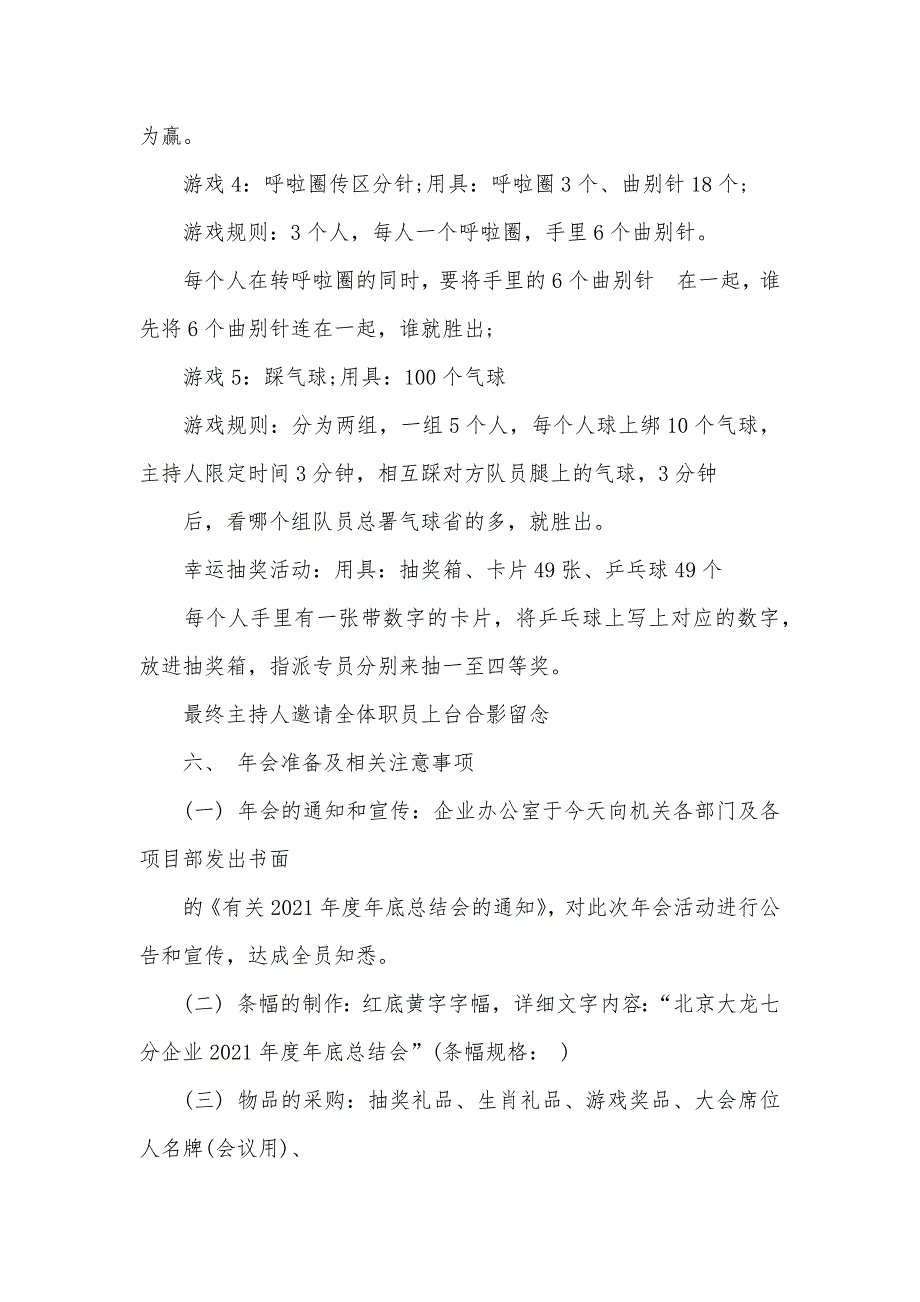 为赢。
游戏4：呼啦圈传区分针;用具：呼啦圈3个、曲别针18个;
游戏规则：3个人，每人一个呼啦圈，手里6个曲别针。
每个人在转呼啦圈的同时，要将手里的6个曲别针　在一起，谁
先将6个曲别针连在一起，谁就胜出;
游戏5：踩气球;用具：100个气球
游戏规则：分为两组，一组5个人，每个人球上绑10个气球，
主持人限定时间3分钟，相互踩对方队员腿上的气球，3分钟
后，看哪个组队员总署气球省的多，就胜出。
幸运抽奖活动：用具：抽奖箱、卡片49张、乒乓球49个
每个人手里有一张带数字的卡片，将乒乓球上写上对应的数字，
放进抽奖箱，指派专员分别来抽一至四等奖。
最终主持人邀请全体职员上台合影留念
六、 年会准备及相关注意事项
(一) 年会的通知和宣传：企业办公室于今天向机关各部门及各
项目部发出书面
的《有关2021年度年底总结会的通知》，对此次年会活动进行公
告和宣传，达成全员知悉。
(二) 条幅的制作：红底黄字字幅，详细文字内容：“北京大龙七
分企业2021年度年底总结会”(条幅规格： )
(三) 物品的采购：抽奖礼品、生肖礼品、游戏奖品、大会席位
人名牌(会议用)、